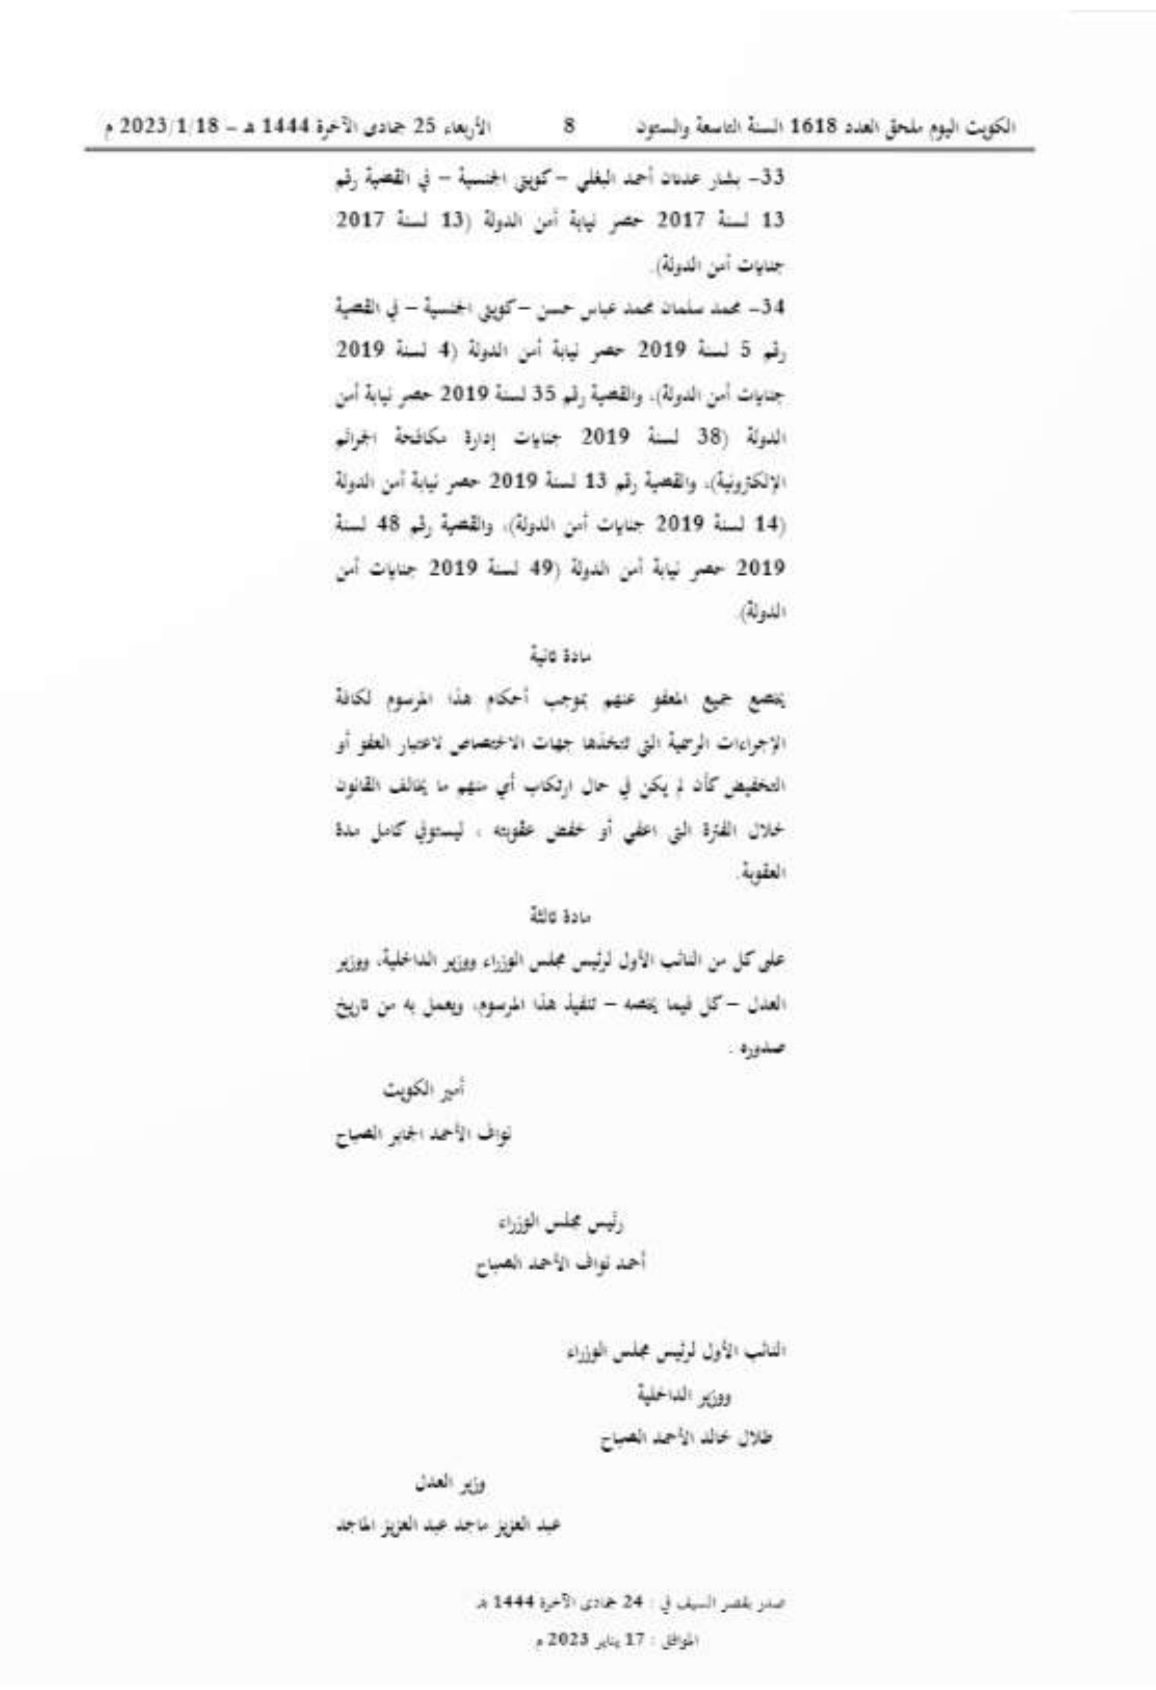 الكويت اليوم ملحق العدد 1618 السنة التاسعة والستون 8 الأربعاء 25 جمادى الآخرة 1444 هـ – 2023/1/18 م
33– بشار عدنان أحمد البغلي – كويتي الجنسية – في القضية رقم
13 لسنة 2017 حصر نيابة أمن الدولة (13 لسنة 2017
جنايات أمن الدولة).
34– محمد سلمان محمد عباس حسن – كويتي الجنسية – في القضية
رقم 5 لسنة 2019 حصر نيابة أمن الدولة (4 لسنة 2019
جنايات أمن الدولة)، والقضية رقم 35 لسنة 2019 حصر نيابة أمن
الدولة (38 لسنة 2019 جنايات إدارة مكافحة الجرائم
الإلكترونية)، والقضية رقم 13 لسنة 2019 حصر نيابة أمن الدولة
(14 لسنة 2019 جنايات أمن الدولة)، والقضية رقم 48 لسنة
2019 حصر نيابة أمن الدولة (49 لسنة 2019 جنايات أمن
الدولة).
مادة ثانية
يخضع جميع المعفو عنهم بموجب أحكام هذا المرسوم لكافة
الإجراءات الرسمية التي تتخذها جهات الاختصاص لاعتبار العفو أو
التخفيض كأن لم يكن في حال ارتكاب أي منهم ما يخالف القانون
خلال الفترة التي اعفي أو خفض عقوبته ، ليستوفي كامل مدة
العقوبة.
مادة ثالثة
على كل من النائب الأول لرئيس مجلس الوزراء ووزير الداخلية، ووزير
العدل – كل فيما يخصه – تنفيذ هذا المرسوم، ويعمل به من تاريخ
صدوره .
أمير الكويت
نواف الأحمد الجابر الصباح
رئيس مجلس الوزراء
أحمد نواف الأحمد الصباح
النائب الأول لرئيس مجلس الوزراء
ووزير الداخلية
طلال خالد الأحمد الصباح
وزير العدل
عبد العزيز ماجد عبد العزيز الماجد
صدر بقصر السيف في : 24 جمادى الآخرة 1444 هـ
الموافق : 17 يناير 2023 م